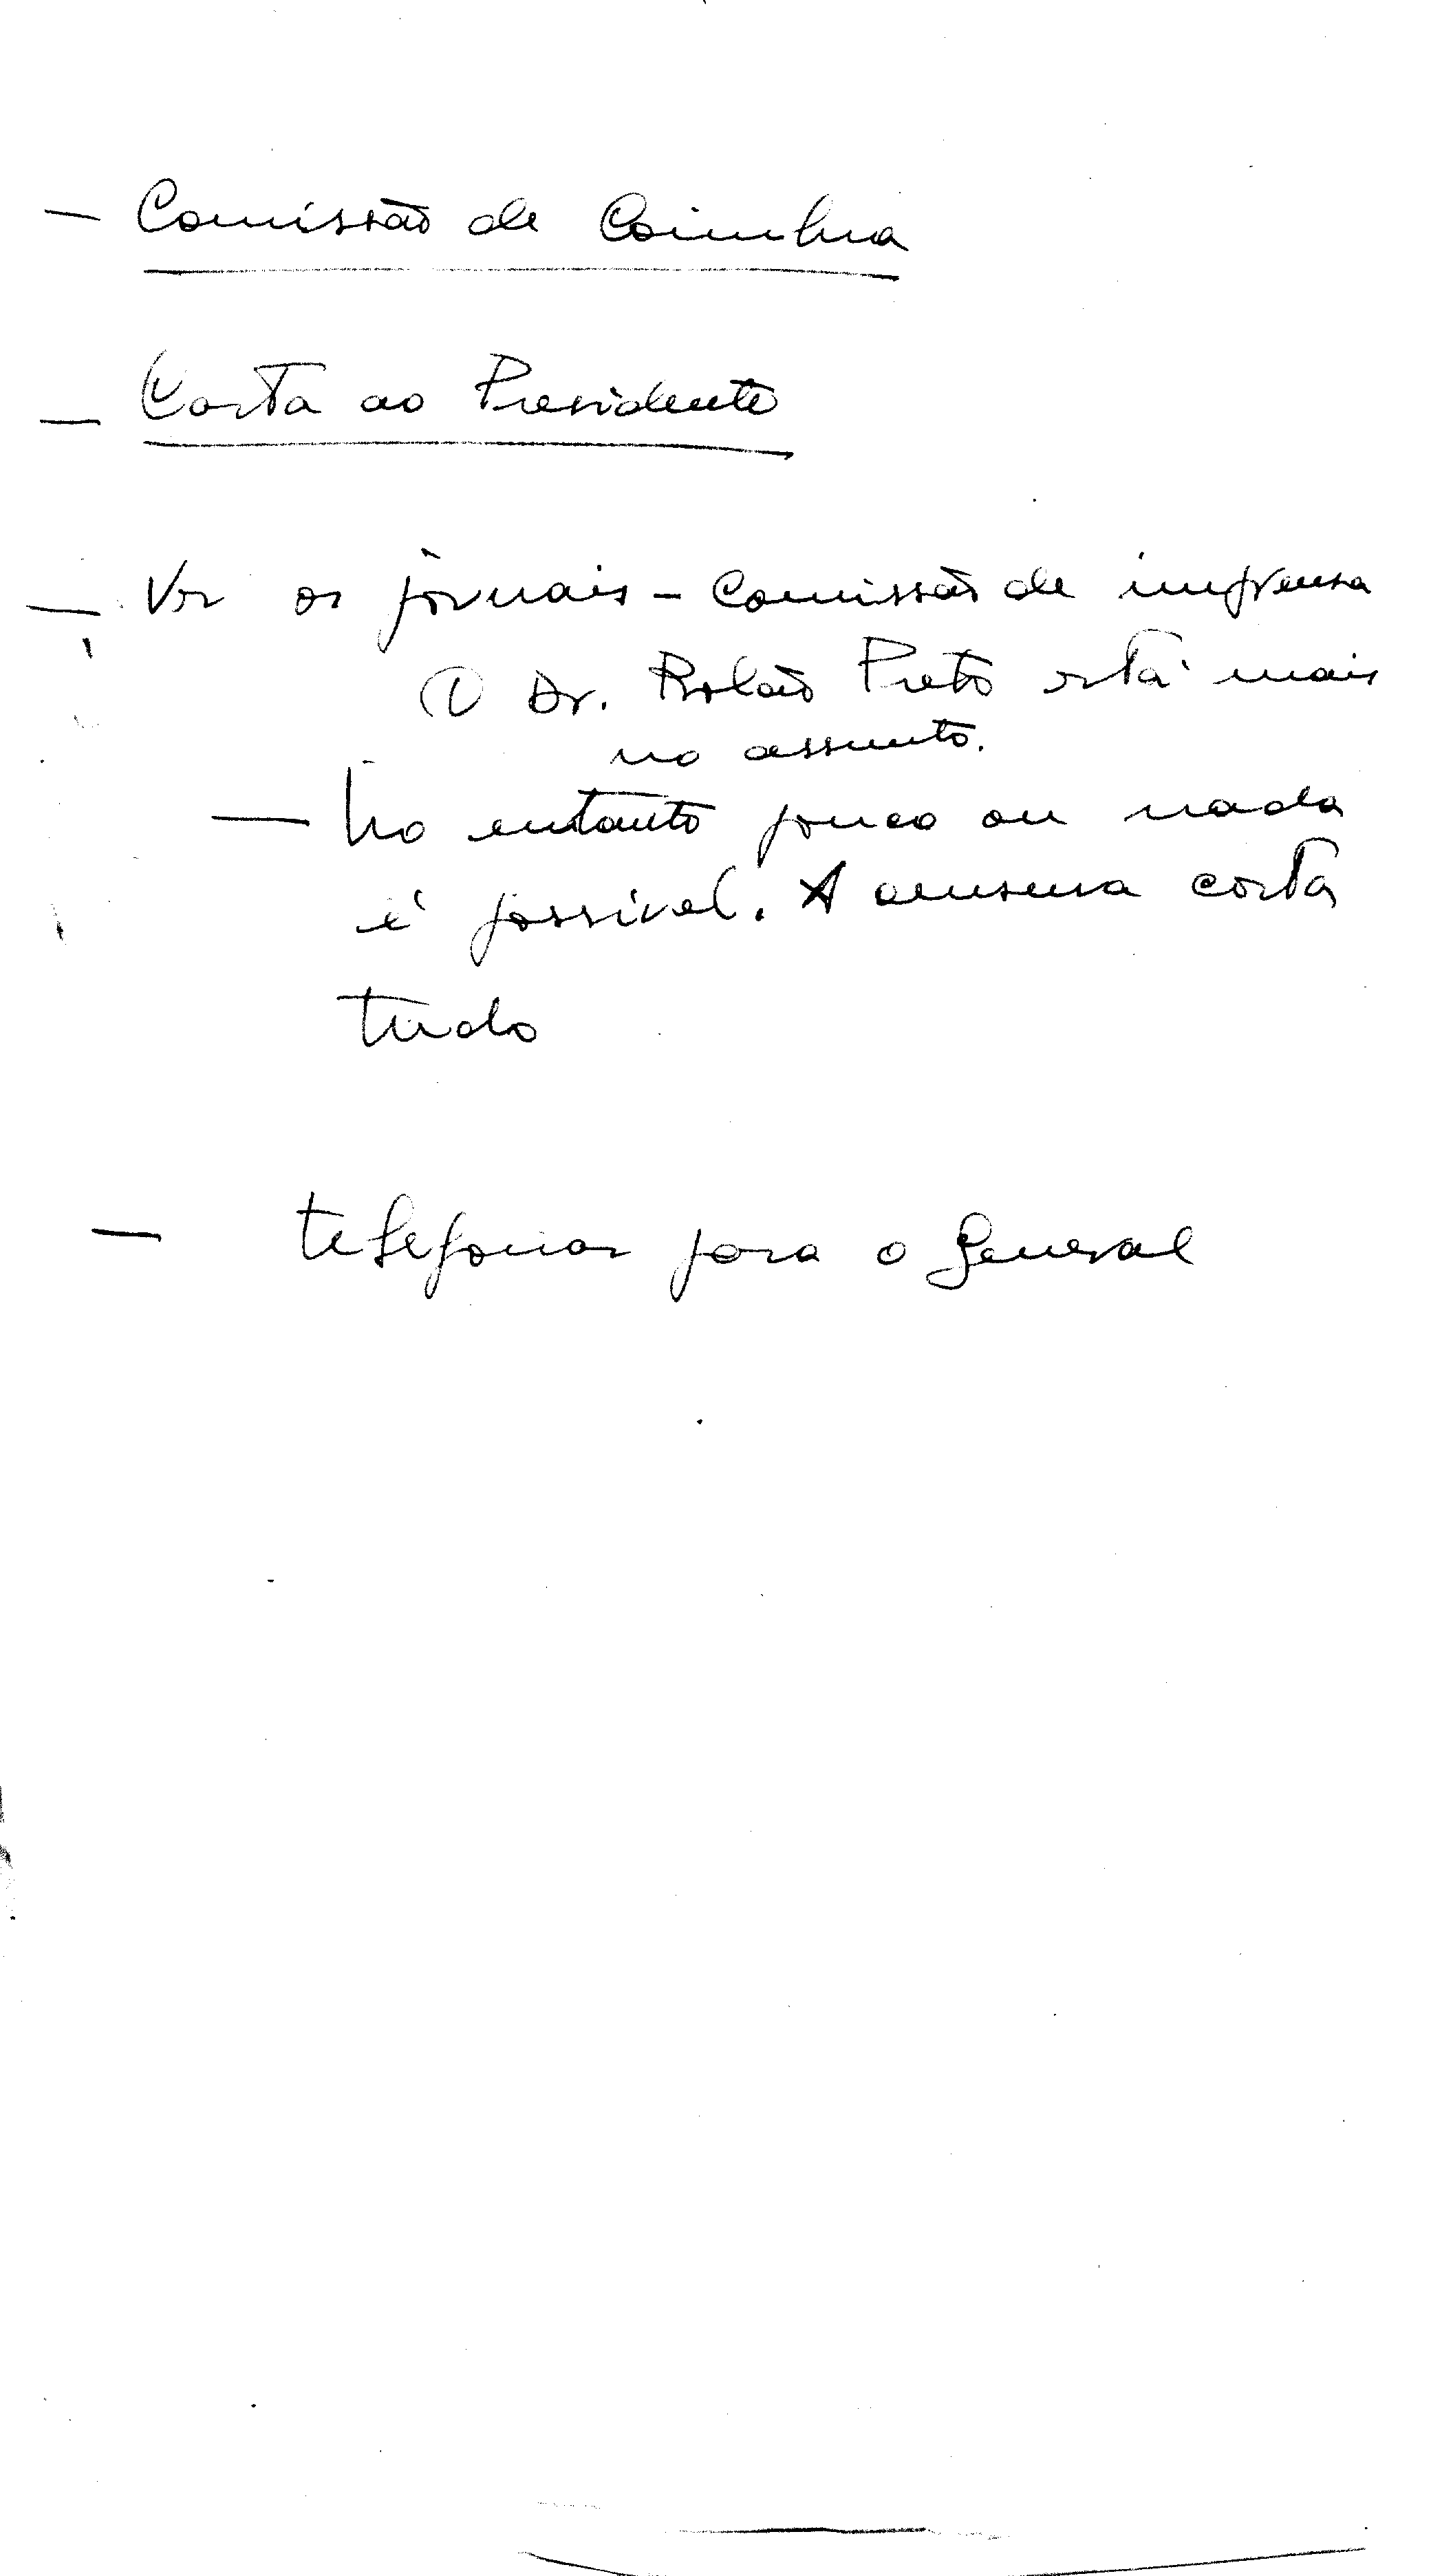 – Comissão de Coimbra
– Carta ao Presidente
– Ver os jornais – Comissão de imprensa
O Dr. Rolão Preto está mais
no assunto.
– No entanto pouco ou nada
é possível. A censura corta
tudo
– telefonar para o General